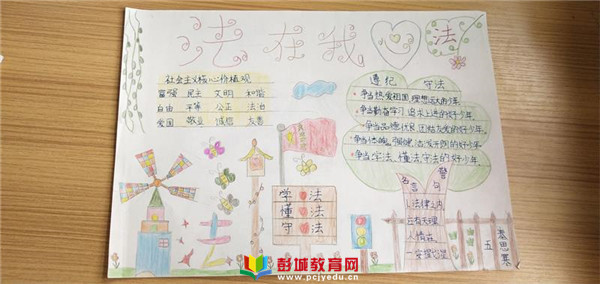 法在我
法
社会主义核心价值观
富强 民主 文明 和谐
自由 平等 公正 法治
爱国 敬业 诚信 友善
遵纪 守法
·争当热爱祖国,理想远大的少年
·争当勤奋学习,追求上进的好少年
·争当品德优良,团结友爱的好少年
·争当体魄强健,活泼开朗的好少年
·争当学法、懂法、守法的好少年
名言 警句
1.法律之内
应有天理
人情在
学法
懂法
守法
五
彭城教育网
www.pcjyedu.cn